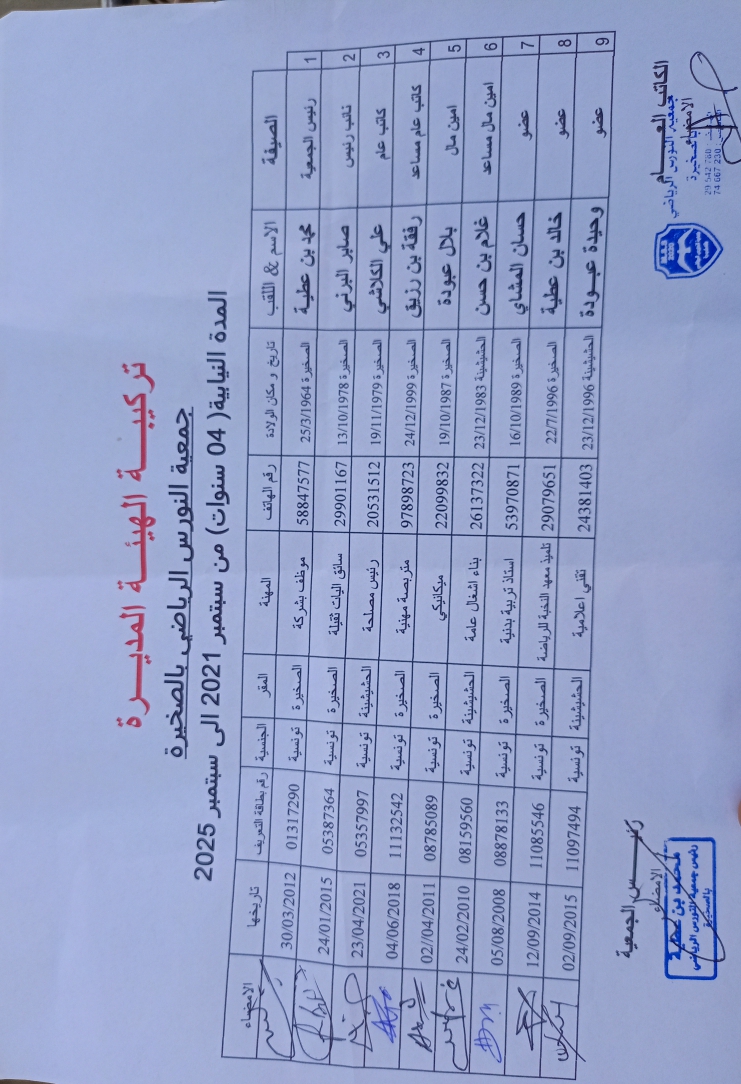 تركيبـــة الهيئـــة المديـــرة
جمعية النورس الرياضي بالصخيرة
المدة النيابية( 04 سنوات) من سبتمبر 2021 الى سبتمبر 2025
الصيفة الاسم & اللقب تاريخ و مكان الولادة رقم الهاتف المهنة المقر الجنسية رقم بطاقة التعريف تاريخها الامضاء
1 رئيس الجمعية محمد بن عطية الصخيرة 25/3/1964 58847577 موظف بشركة الصخيرة تونسية 01317290 30/03/2012
2 نائب رئيس صابر البرني الصخيرة 13/10/1978 29901167 سائق اليات ثقيلة الصخيرة تونسية 05387364 24/01/2015
3 كاتب عام علي الكلاشي الصخيرة 19/11/1979 20531512 رئيس مصلحة الحشيشينة تونسية 05357997 23/04/2021
4 كاتب عام مساعد رفقة بن رزيق الصخيرة 24/12/1999 97898723 متربصة مهنية الصخيرة تونسية 11132542 04/06/2018
5 امين مال بلال عبودة الصخيرة 19/10/1987 22099832 ميكانيكي الصخيرة تونسية 08785089 02//04/2011
6 امين مال مساعد غلام بن حسن الحشيشينة 23/12/1983 26137322 بناء اشغال عامة الحشيشينة تونسية 08159560 24/02/2010
7 عضو حسان المشاي الصخيرة 16/10/1989 53970871 استاذ تربية بدنية الصخيرة تونسية 08878133 05/08/2008
8 عضو خالد بن عطية الصخيرة 22/7/1996 29079651 تلميذ معهد النخبة للرياضة الصخيرة تونسية 11085546 12/09/2014
9 عضو وحيدة عبـودة الحشيشينة 23/12/1996 24381403 تقني اعلامية الحشيشينة تونسية 11097494 02/09/2015
الكاتب العـــام
جمعية النورس الرياضي
بالصخيرة
الامضاء
29 542 780
74 667 230
رئيـــس الجمعية
الامضاء
محمد بن عطية
رئيس جمعية النورس الرياضي
بالصخيرة